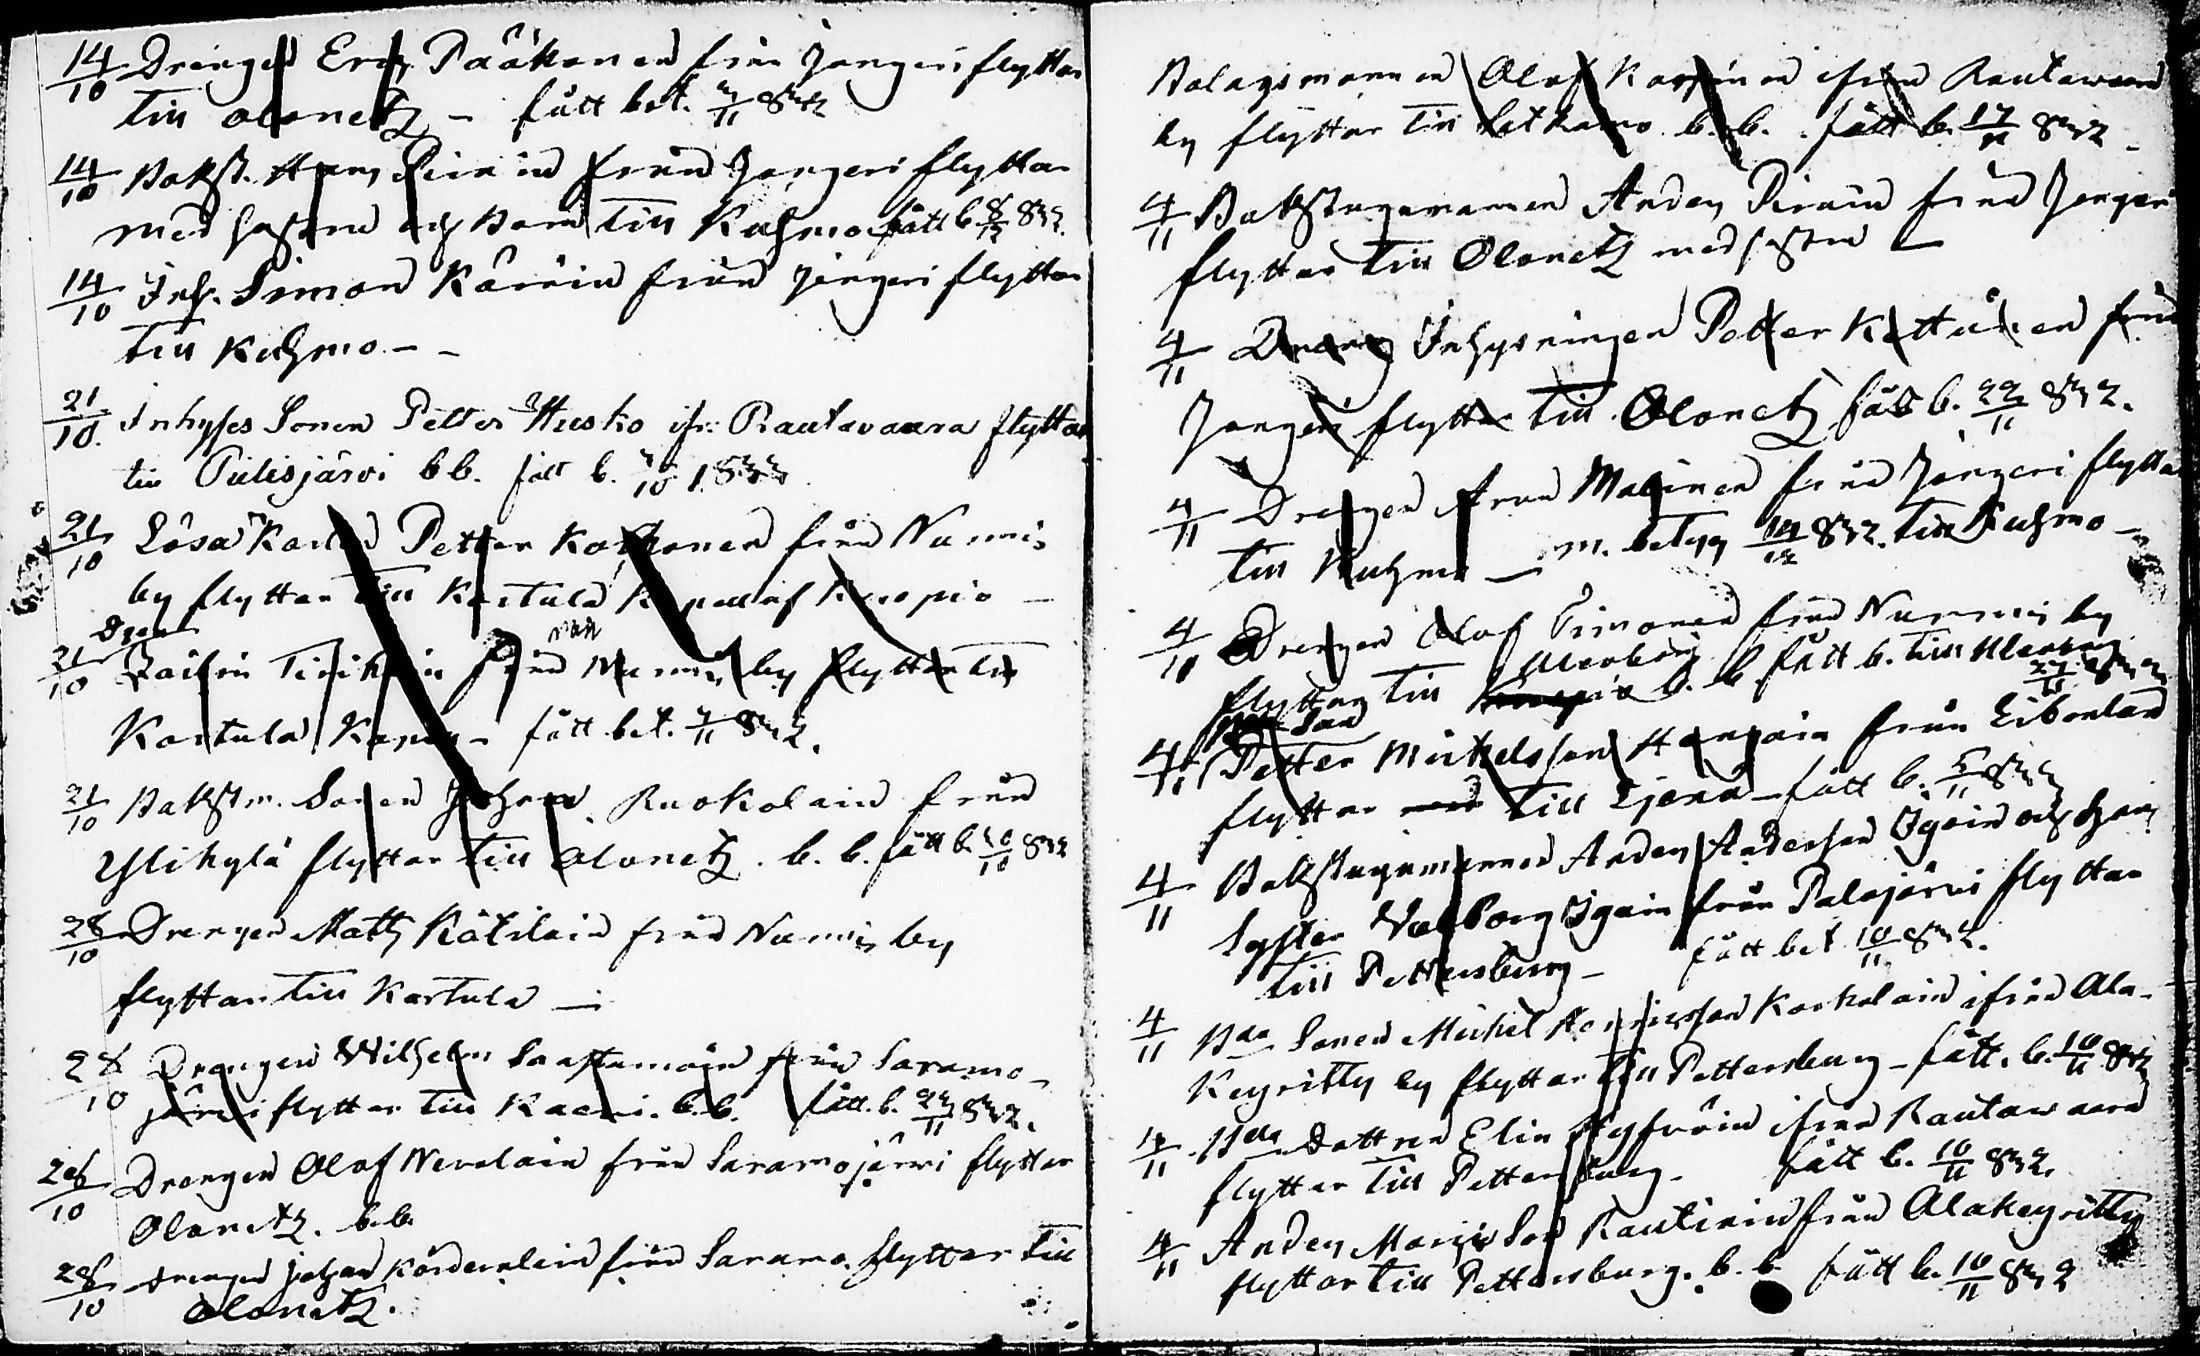 14/10 Drengen Eric Pääkönen från Jongeri flyttar
till Olonetz - fått bet. 4/11 832
14/10 Bakst. Hans Pirinen från Jongeri flyttar
med hustru och barn till Kuhmo fått b. 832.
14/10 Inh. Simon Kärnin från Jongeri flyttar
till Kuhmo - -
21/10. Inhyses Sonen Petter Husko ifr: Rautavaara flyttar
till Pielisjärvi b b. fått b. 1832
21/10 Lösa Karlen Petter från Nurmis
by flyttar till Kartula Kapell af Kuopio -
21/10 från Nurmis by flyttar till
Kartula Kapell - fått bet. 4/11 832.
21/10 Bakstm. Sonen Johan Ruokolain från
Ylikylä flyttar till Olonetz. b. b. fått b. 832
28/10 Drengen Matts Kätilain från Nurmis by
flyttar till Kartula -
28/10 Drengen Wilhelm Saastamoin från Saramo-
järvi flyttar till Kaavi. b.b. fått b. 832.
28/10 Drengen Olof Nevalain från Saramojärvi flyttar
Olonetz. b.b.
28/10 drengen Johan från Saramo flyttar till
Olonetz.
Bolagsmannen Olof ifrån Rautavaara
by flyttar till Sotkamo b. b. fått b. 17/11 832 -
4/11 Bakstugumannen Anders Pirain från Jongeri
flyttar till Olonetz med hustru -
4/11 Inhysningen Petter från
Jongeri flyttar till Olonetz fått b. 22/11 832.
4/11 Drengen Malinen från Jongeri flyttar
till Kuhmo - m. betyg 832. till Kuhmo -
4/11 Drengen Olof Timonen från Nurmis by
flyttar till Uleaborg b. b. fått b. till Uleaborg
Son
4/11 Petter Mickelsson från
flyttar till fått b. 5/11 832
4/11 Bakstugumannen Anders Andersson Igoin och hans
Syster Walborg Igoin från Palojärvi flyttar
till Pettersburg - fått bet 10/11 832.
4/11 Sonen Michel Korkolain ifrån Ala-
Keyritty by flyttar till Pettersburg - fått. b. 10/11 832
4/11 Dottren Elin ifrån Rautawaara
flyttar till Pettersburg. fått b. 10/11 832.
4/11 Anders Rautiain från Alakeyritty
flyttar till Pettersburg. b. b. fått b. 10/11 832